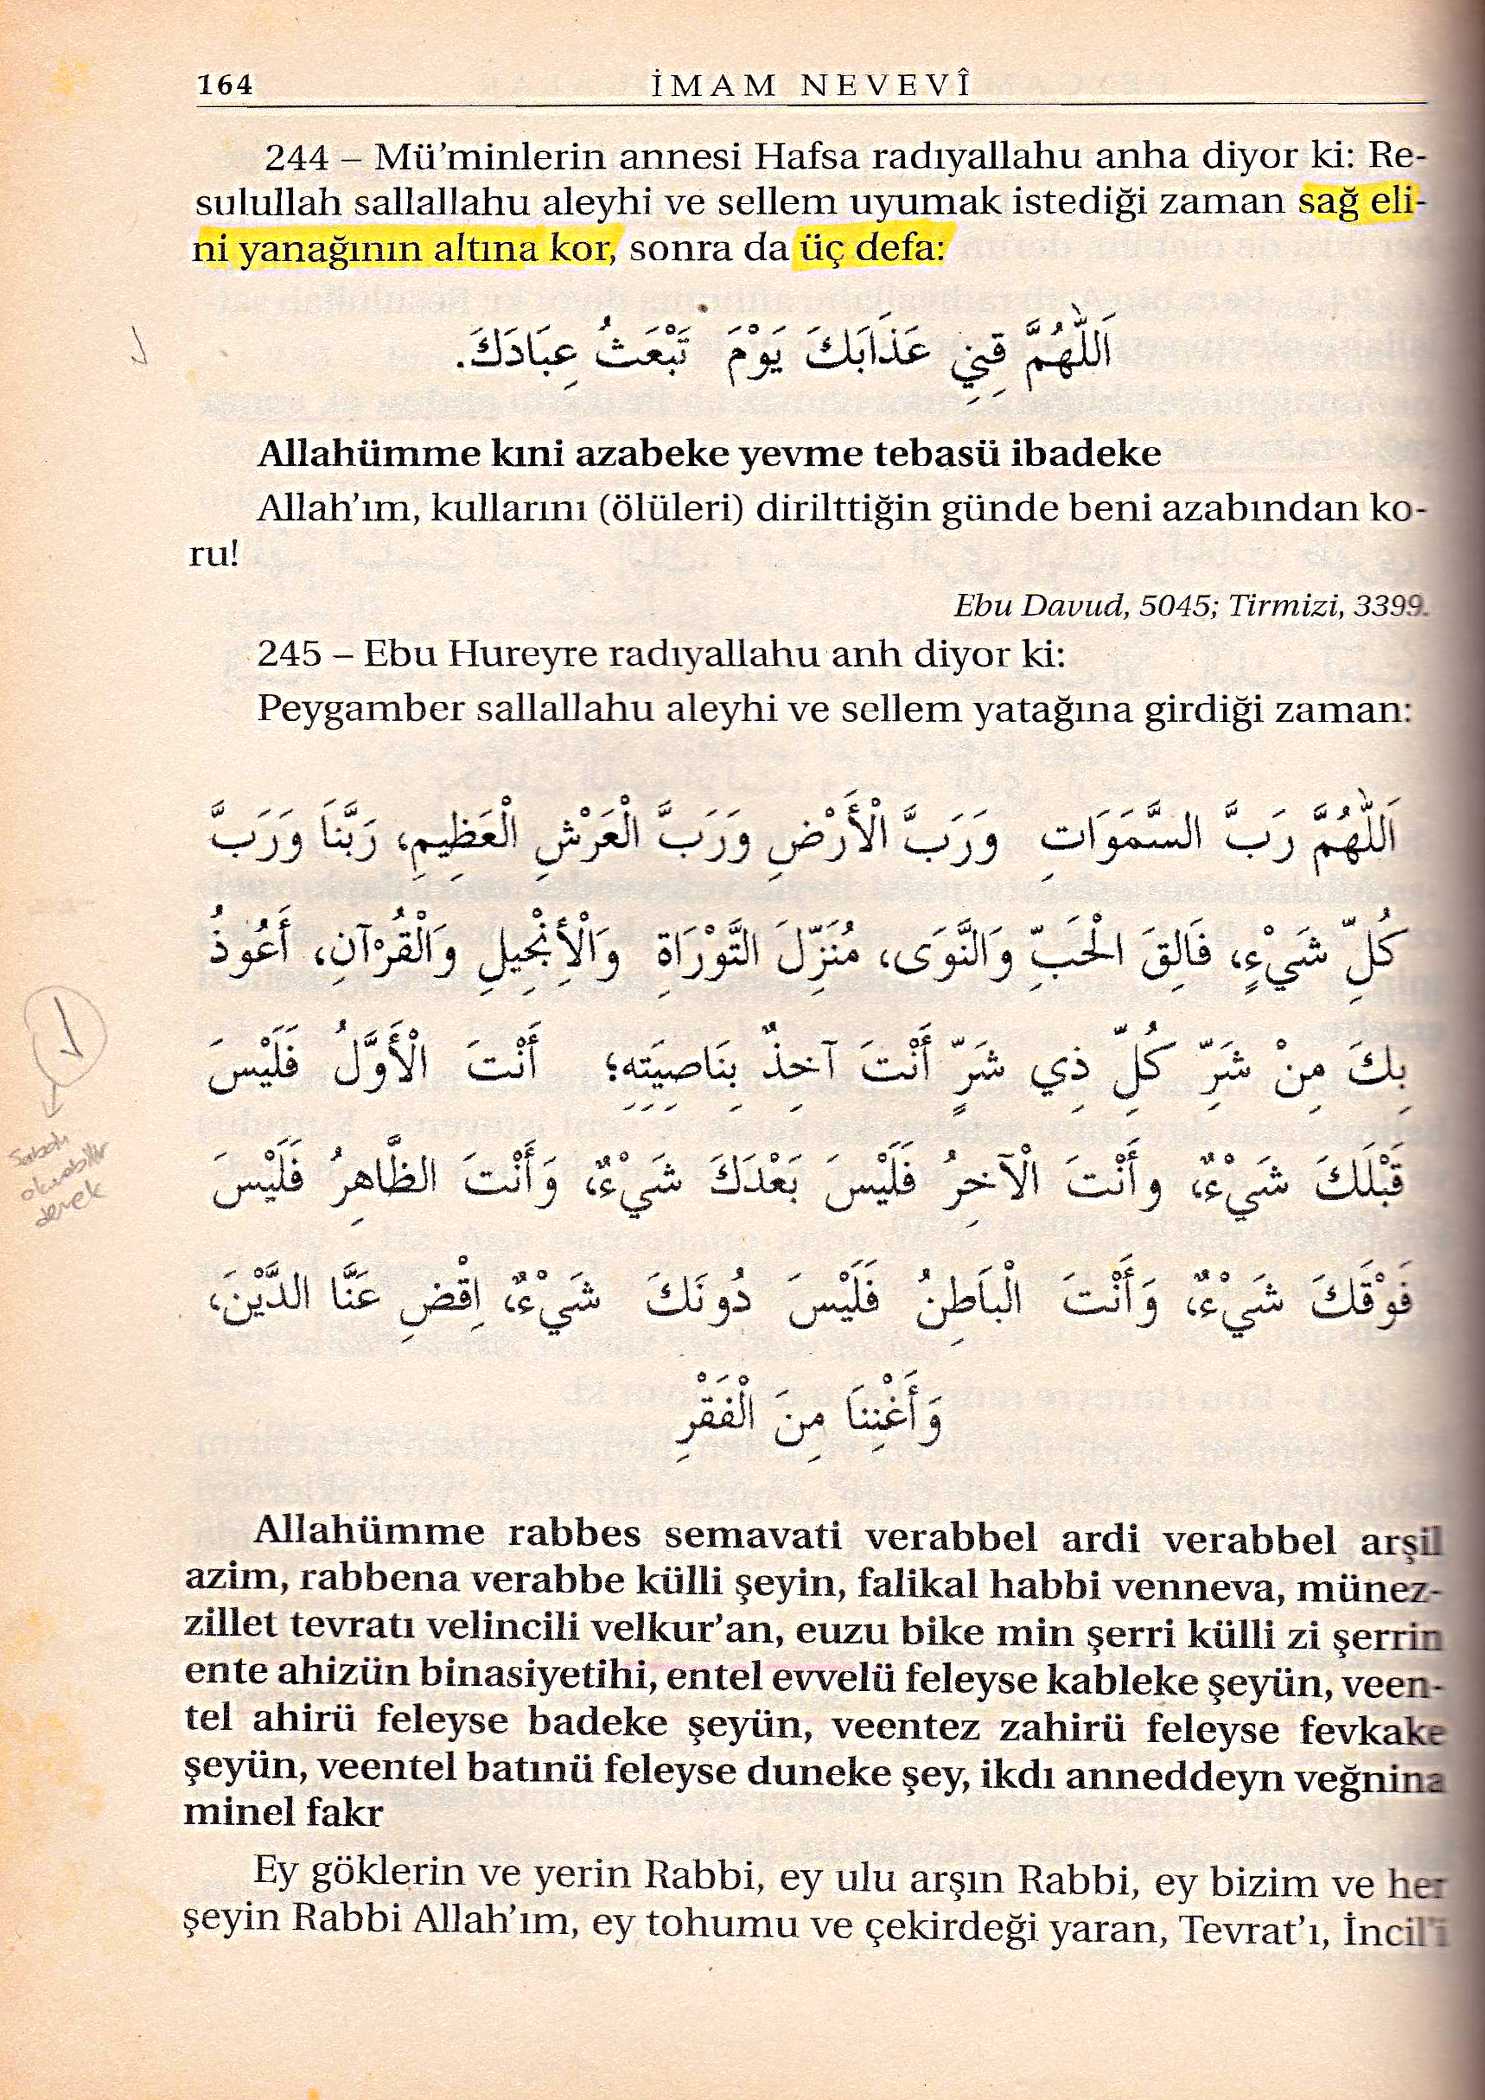 164
İMAM NEVEVÎ
244 – Mü’minlerin annesi Hafsa radıyallahu anha diyor ki: Re-
sulullah sallallahu aleyhi ve sellem uyumak istediği zaman sağ eli-
ni yanağının altına kor, sonra da üç defa:
اَللّٰهُمَّ قِنِي عَذَابَكَ يَوْمَ تَبْعَثُ عِبَادَكَ.
Allahümme kıni azabeke yevme tebasü ibadeke
Allah’ım, kullarını (ölüleri) dirilttiğin günde beni azabından ko-
ru!
Ebu Davud, 5045; Tirmizi, 3399.
245 – Ebu Hureyre radıyallahu anh diyor ki:
Peygamber sallallahu aleyhi ve sellem yatağına girdiği zaman:
اَللّٰهُمَّ رَبَّ السَّمَوَاتِ وَرَبَّ الْأَرْضِ وَرَبَّ الْعَرْشِ الْعَظِيمِ، رَبَّنَا وَرَبَّ
كُلِّ شَيْءٍ، فَالِقَ الْحَبِّ وَالنَّوَى، مُنَزِّلَ التَّوْرَاةِ وَالْأِنْجِيلِ وَالْقُرْآنِ، أَعُوذُ
بِكَ مِنْ شَرِّ كُلِّ ذِي شَرٍّ أَنْتَ آخِذٌ بِنَاصِيَتِهِ؛ أَنْتَ الْأَوَّلُ فَلَيْسَ
قَبْلَكَ شَيْءٌ، وأَنْتَ الْآخِرُ فَلَيْسَ بَعْدَكَ شَيْءٌ، وَأَنْتَ الظَّاهِرُ فَلَيْسَ
فَوْقَكَ شَيْءٌ، وَأَنْتَ الْبَاطِنُ فَلَيْسَ دُونَكَ شَيْءٌ، اِقْضِ عَنَّا الدَّيْنَ،
وَأَغْنِنَا مِنَ الْفَقْرِ
Sabah
okunabilir
demek
Allahümme rabbes semavati verabbel ardi verabbel arşil
azim, rabbena verabbe külli şeyin, falikal habbi venneva, münez-
zillet tevratı velincili velkur’an, euzu bike min şerri külli zi şerrin
ente ahizün binasiyetihi, entel evvelü feleyse kableke şeyün, veen-
tel ahirü feleyse badeke şeyün, veentez zahirü feleyse fevkake
şeyün, veentel batınü feleyse duneke şey, ikdı anneddeyn veğnina
minel fakr
Ey göklerin ve yerin Rabbi, ey ulu arşın Rabbi, ey bizim ve her
şeyin Rabbi Allah’ım, ey tohumu ve çekirdeği yaran, Tevrat’ı, İncil’i